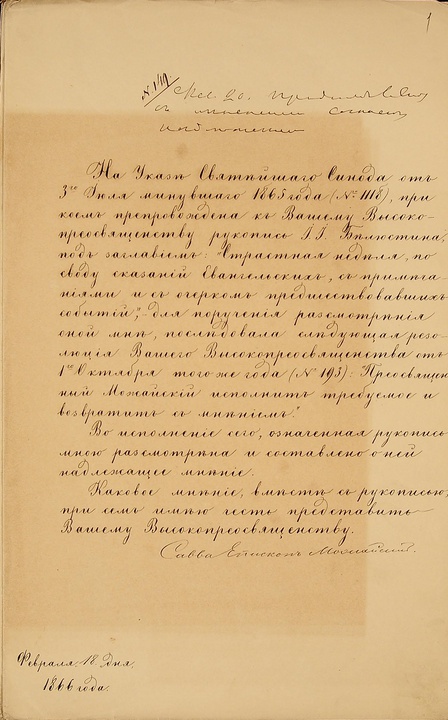 1
№ 149/
На Указѣ Святѣйшаго Синода отъ
3го Іюля минувшаго 1865 года (№ 1118), при
коемъ препровождена къ Вашему Высоко-
преосвященству рукопись І. І. Бѣлюстина,
подъ заглавіемъ: "Страстная недѣля, по
своду сказаній Евангельскихъ, съ примѣча-
ніями и съ очеркомъ предшествовавшихъ
событій," для порученія разсмотрѣнія
оной мнѣ, послѣдовала слѣдующая резо-
люція Вашего Высокопреосвященства отъ
1го Октября того же года (№ 193): Преосвящен
ный Можайскій исполнитъ требуемое и
возвратитъ съ мнѣніемъ."
Во исполненіе сего, означенная рукопись
мною разсмотрѣна и составлено о ней
надлежащее мнѣніе.
Каковое мнѣніе, вмѣстѣ съ рукописью,
при семъ имѣю честь представить
Вашему Высокопреосвященству.
Савва Епископъ Можайскій.
Февраля 18 дня.
1866 года.